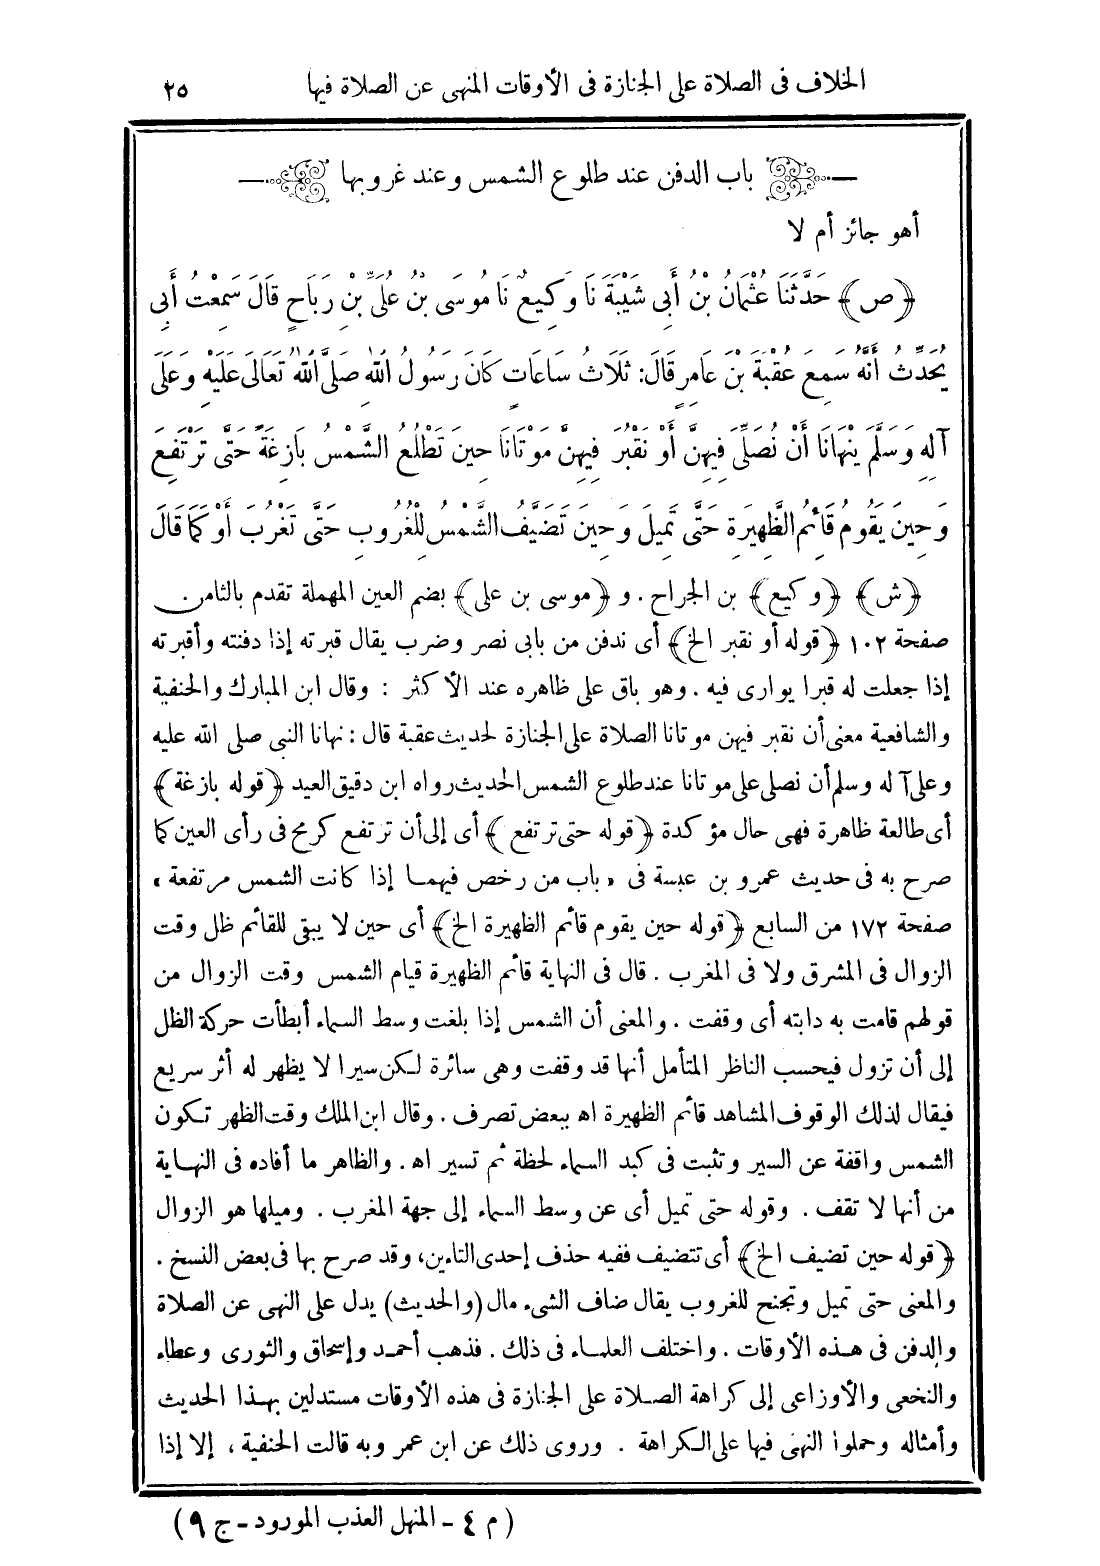 الخلاف فى الصلاة على الجنازة فى الأوقات المنهى عن الصلاة فيها ٢٥
باب الدفن عند طلوع الشمس وعند غروبها
أهو جائز أم لا
﴿ص﴾ حَدَّثَنَا عُثْمَانُ بْنُ أَبِى شَيْبَةَ نَا وَكِيعٌ نَا مُوسَى بْنُ عُلَىِّ بْنِ رَبَاحٍ قَالَ سَمِعْتُ أَبِى
يُحَدِّثُ أَنَّهُ سَمِعَ عُقْبَةَ بْنَ عَامِرٍ قَالَ: ثَلَاثُ سَاعَاتٍ كَانَ رَسُولُ اللهِ صَلَّى اللهُ تَعَالَى عَلَيْهِ وَعَلَى
آلِهِ وَسَلَّمَ يَنْهَانَا أَنْ نُصَلِّىَ فِيهِنَّ أَوْ نَقْبُرَ فِيهِنَّ مَوْتَانَا حِينَ تَطْلُعُ الشَّمْسُ بَازِغَةً حَتَّى تَرْتَفِعَ
وَحِينَ يَقُومُ قَائِمُ الظَّهِيرَةِ حَتَّى تَمِيلَ وَحِينَ تَضَيَّفُ الشَّمْسُ لِلْغُرُوبِ حَتَّى تَغْرُبَ أَوْ كَمَا قَالَ
﴿ش﴾ ﴿وكيع﴾ بن الجراح . و ﴿موسى بن على﴾ بضم العين المهملة تقدم بالثامن
صفحة ١٠٢ ﴿قوله أو نقبر الخ﴾ أى ندفن من بابى نصر وضرب يقال قبرته إذا دفنته وأقبرته
إذا جعلت له قبرا يوارى فيه . وهو باق على ظاهره عند الأكثر : وقال ابن المبارك والحنفية
والشافعية معنى أن نقبر فيهن موتانا الصلاة على الجنازة لحديث عقبة قال : نهانا النبى صلى الله عليه
وعلى آله وسلم أن نصلى على موتانا عند طلوع الشمس الحديث رواه ابن دقيق العيد ﴿قوله بازغة﴾
أى طالعة ظاهرة فهى حال مؤكدة ﴿قوله حتى ترتفع﴾ أى إلى أن ترتفع كرمح فى رأى العين كما
صرح به فى حديث عمرو بن عبسة فى «باب من رخص فيهما إذا كانت الشمس مرتفعة»
صفحة ١٧٢ من السابع ﴿قوله حين يقوم قائم الظهيرة الخ﴾ أى حين لا يبقى للقائم ظل وقت
الزوال فى المشرق ولا فى المغرب . قال فى النهاية قائم الظهيرة قيام الشمس وقت الزوال من
قولهم قامت به دابته أى وقفت . والمعنى أن الشمس إذا بلغت وسط السماء أبطأت حركة الظل
إلى أن تزول فيحسب الناظر المتأمل أنها قد وقفت وهى سائرة لكن سيرا لا يظهر له أثر سريع
فيقال لذلك الوقوف المشاهد قائم الظهيرة اه ببعض تصرف . وقال ابن الملك وقت الظهر تكون
الشمس واقفة عن السير وتثبت فى كبد السماء لحظة ثم تسير اه . والظاهر ما أفاده فى النهاية
من أنها لا تقف . وقوله حتى تميل أى عن وسط السماء إلى جهة المغرب . وميلها هو الزوال
﴿قوله حين تضيف الخ﴾ أى تتضيف ففيه حذف إحدى التاءين، وقد صرح بها فى بعض النسخ .
والمعنى حتى تميل وتجنح للغروب يقال ضاف الشىء مال (والحديث) يدل على النهى عن الصلاة
والدفن فى هذه الأوقات . واختلف العلماء فى ذلك . فذهب أحمد وإسحاق والثورى وعطاء
والنخعى والأوزاعى إلى كراهة الصلاة على الجنازة فى هذه الأوقات مستدلين بهذا الحديث
وأمثاله وحملوا النهى فيها على الكراهة . وروى ذلك عن ابن عمر وبه قالت الحنفية ، إلا إذا
(م ٤ - المنهل العذب المورود - ج ٩)